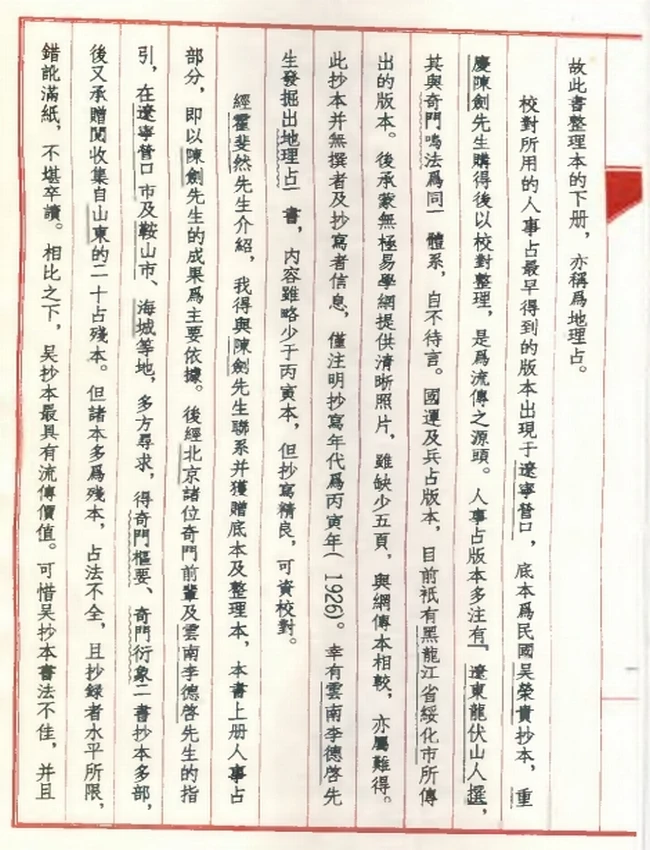 故此書整理本的下册，亦稱爲地理占。
校對所用的人事占最早得到的版本出現于遼寧營口，底本爲民國吴榮貴抄本，重
慶陳劍先生購得後以校對整理，是爲流傳之源頭。人事占版本多注有『遼東龍伏山人撰，
其與奇門鳴法爲同一體系，自不待言。國運及兵占版本，目前衹有黑龍江省綏化市所傳
出的版本。後承蒙無極易學網提供清晰照片，雖缺少五頁，與網傳本相較，亦屬難得。
此抄本并無撰者及抄寫者信息，僅注明抄寫年代爲丙寅年(1926)。幸有雲南李德啓先
生發掘出地理占一書，内容雖略少于丙寅本，但抄寫精良，可資校對。
經霍斐然先生介紹，我得與陳劍先生聯系并獲贈底本及整理本，本書上册人事占
部分，即以陳劍先生的成果爲主要依據。後經北京諸位奇門前輩及雲南李德啓先生的指
引，在遼寧營口市及鞍山市、海城等地，多方尋求，得奇門樞要、奇門衍象二書抄本多部，
後又承贈閱收集自山東的二十占殘本。但諸本多爲殘本，占法不全，且抄録者水平所限，
錯訛滿紙，不堪卒讀。相比之下，吴抄本最具有流傳價值。可惜吴抄本書法不佳，并且